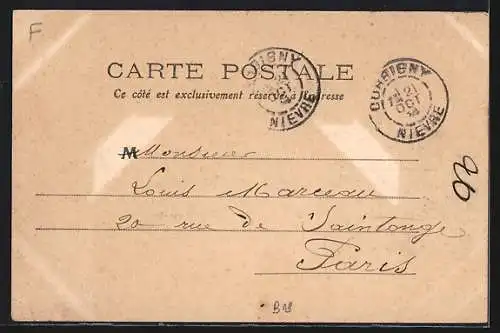 F
CARTE POSTALE
Ce côté est exclusivement réservé à l'adresse
CORBIGNY
NIEVRE
CORBIGNY
21
OCT
NIEVRE
Monsieur
Louis Marceau
20 rue de Saintonge
Paris